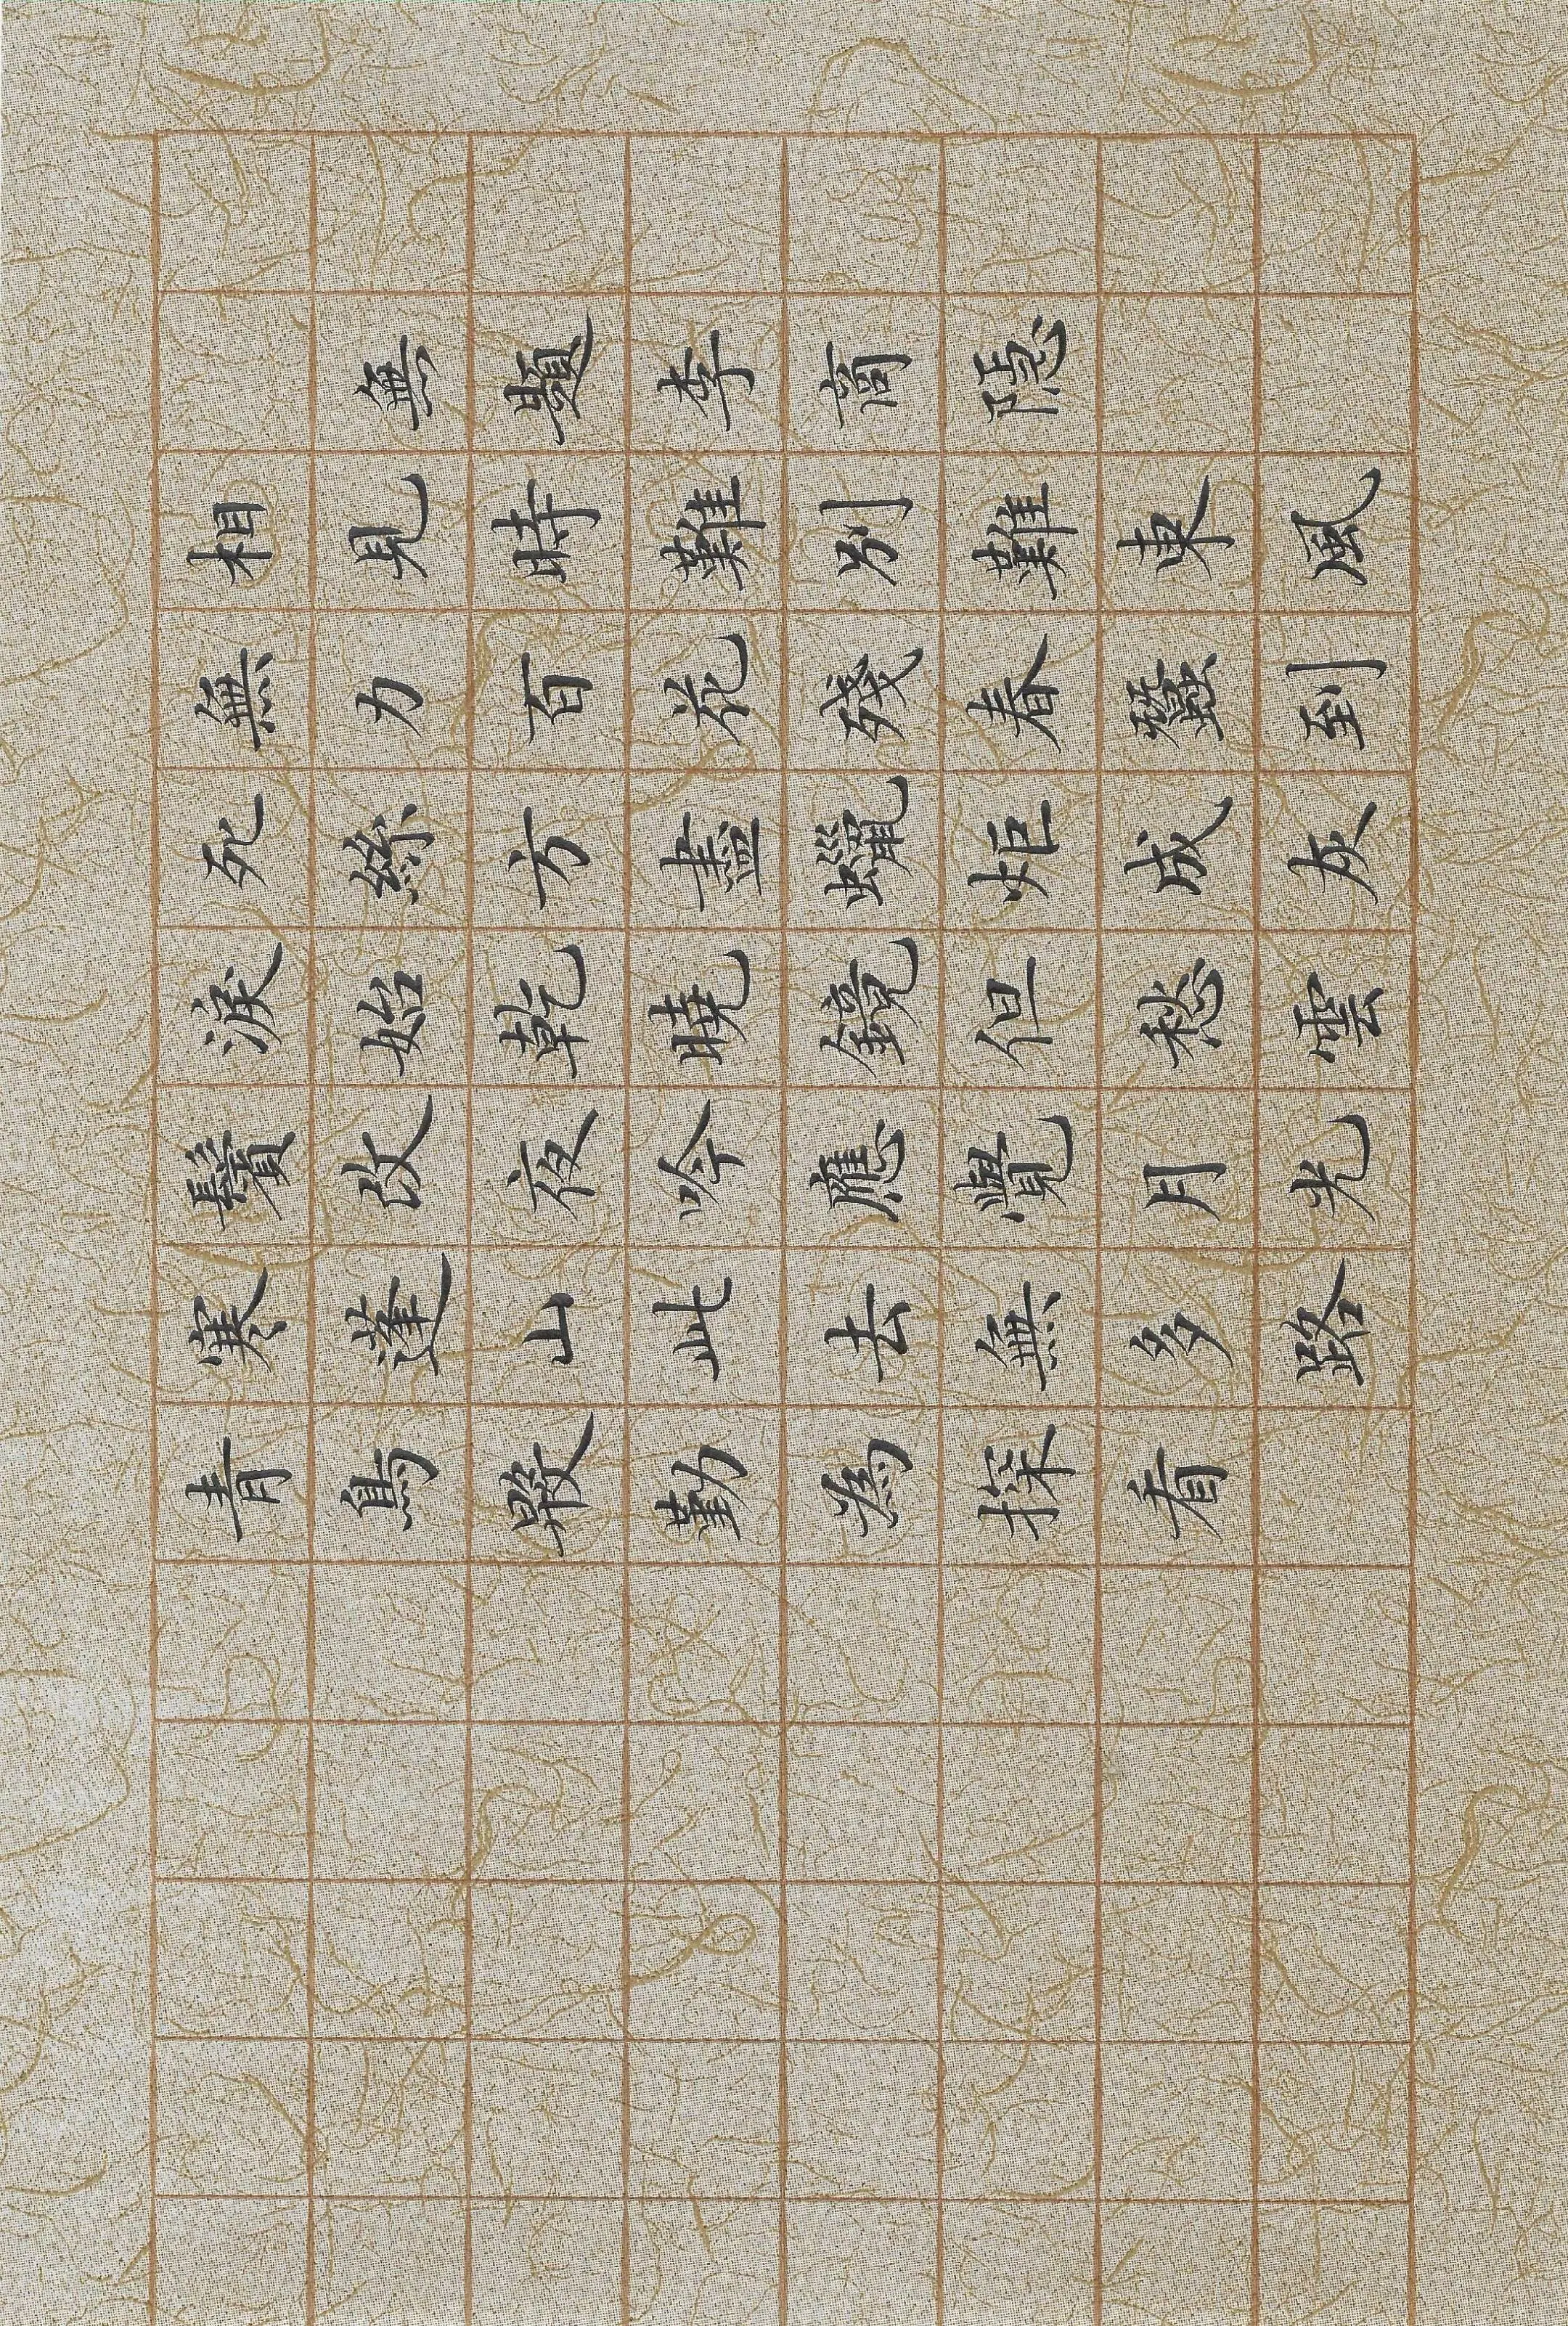 無題李商隱
相見時難別難東風
無力百花殘春蠶到
死絲方盡蠟炬成灰
淚始乾曉鏡但愁雲
鬢改夜吟應覺月光
寒蓬山此去無多路
青鳥殷勤為探看